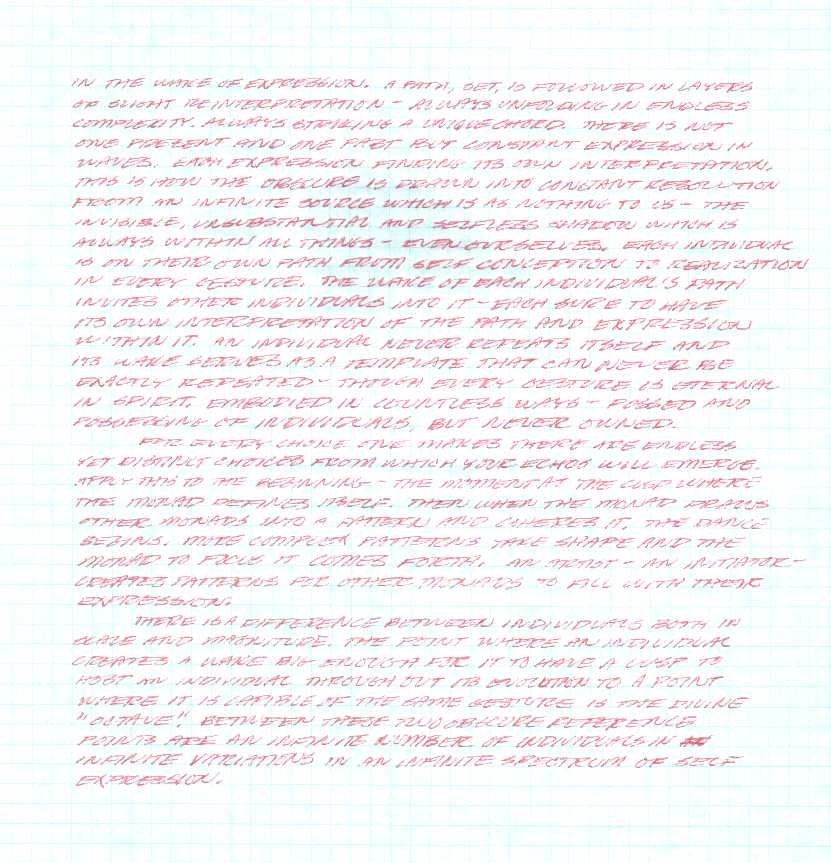 IN THE WAKE OF EXPRESSION. A PATH, SET, IS FOLLOWED IN LAYERS
OF SLIGHT REINTERPRETATION - ALWAYS UNFOLDING IN ENDLESS
COMPLEXITY. ALWAYS STRIKING A UNIQUE CHORD. THERE IS NOT
ONE PRESENT AND ONE PAST BUT CONSTANT EXPRESSION IN
WAVES. EACH EXPRESSION FINDING ITS OWN INTERPRETATION.
THIS IS HOW THE OBSCURE IS DRAWN INTO CONSTANT RESOLUTION
FROM AN INFINITE SOURCE WHICH IS AS NOTHING TO US - THE
INVISIBLE, UNSUBSTANTIAL AND SELFLESS SHADOW WHICH IS
ALWAYS WITHIN ALL THINGS - EVEN OURSELVES. EACH INDIVIDUAL
IS ON THEIR OWN PATH FROM SELF CONCEPTION TO REALIZATION
IN EVERY GESTURE. THE WAKE OF EACH INDIVIDUAL'S PATH
INVITES OTHER INDIVIDUALS INTO IT - EACH SURE TO HAVE
ITS OWN INTERPRETATION OF THE PATH AND EXPRESSION
WITHIN IT. AN INDIVIDUAL NEVER REPEATS ITSELF AND
ITS WAKE SERVES AS A TEMPLATE THAT CAN NEVER BE
EXACTLY REPEATED - THOUGH EVERY GESTURE IS ETERNAL
IN SPIRIT. EMBODIED IN COUNTLESS WAYS - POSSED AND
POSSESSING OF INDIVIDUALS, BUT NEVER OWNED.
FOR EVERY CHOICE ONE MAKES THERE ARE ENDLESS
YET DISTINCT CHOICES FROM WHICH YOUR ECHOS WILL EMERGE.
APPLY THIS TO THE BEGINNING - THE MOMENT AT THE CUSP WHERE
THE MONAD DEFINES ITSELF. THEN WHEN THE MONAD DRAWS
OTHER MONADS INTO A PATTERN AND COHERES IT, THE DANCE
BEGINS. MORE COMPLEX PATTERNS TAKE SHAPE AND THE
MONAD TO FOCUS IT COMES FORTH. AN ARTIST - AN INITIATOR -
CREATES PATTERNS FOR OTHER MONADS TO FILL WITH THEIR
EXPRESSION.
THERE IS A DIFFERENCE BETWEEN INDIVIDUALS BOTH IN
SCALE AND MAGNITUDE. THE POINT WHERE AN INDIVIDUAL
CREATES A WAKE BIG ENOUGH FOR IT TO HAVE A CUSP TO
HOST AN INDIVIDUAL THROUGHOUT ITS EVOLUTION TO A POINT
WHERE IT IS CAPABLE OF THE SAME GESTURE IS THE DIVINE
"OCTAVE". BETWEEN THESE TWO OBSCURE REFERENCE
POINTS ARE AN INFINITE NUMBER OF INDIVIDUALS IN
INFINITE VARIATIONS IN AN INFINITE SPECTRUM OF SELF
EXPRESSION.